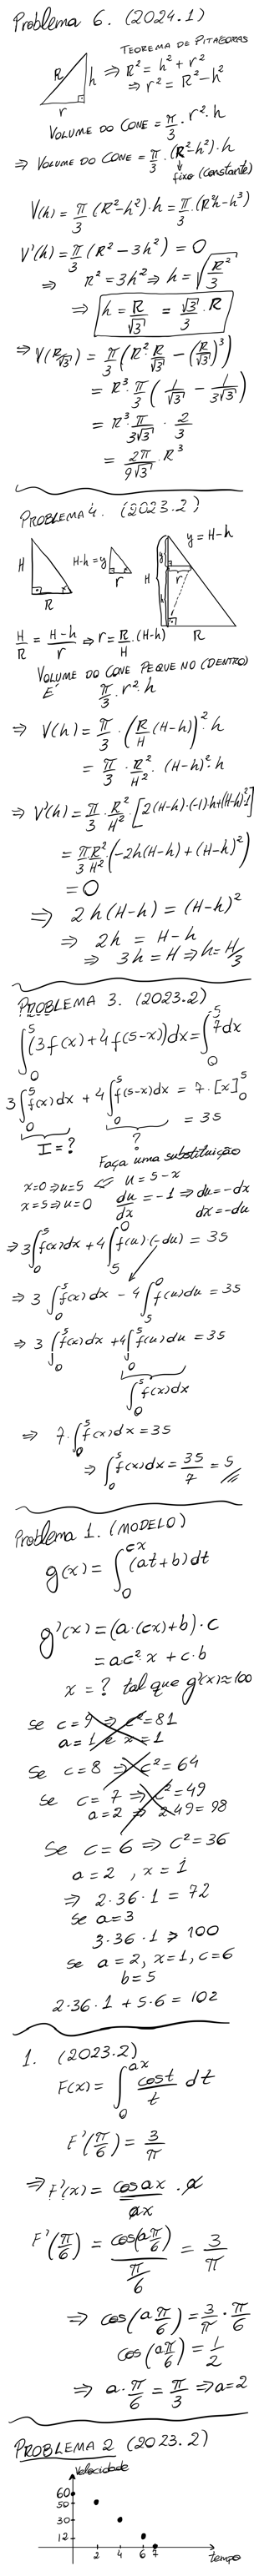 Problema 6. (2024.1)
TEOREMA DE PITÁGORAS
R h ⇒ R² = h² + r²
r ⇒ r² = R² - h²
VOLUME DO CONE = π/3 . r² . h
⇒ VOLUME DO CONE = π/3 . (R² - h²) . h
fixo (constante)
V(h) = π/3 (R² - h²) . h = π/3 . (R²h - h³)
V'(h) = π/3 (R² - 3h²) = 0
⇒ R² = 3h² ⇒ h = √(R²/3)
⇒ h = R/√3 = √3/3 . R
⇒ V(R/√3) = π/3 (R² . R/√3 - (R/√3)³)
= R³ . π/3 (1/√3 - 1/(3√3))
= R³ π/(3√3) . 2/3
= 2π/(9√3) . R³
PROBLEMA 4. (2023.2)
y = H - h
H R H-h = y r H y h r R
H/R = (H-h)/r ⇒ r = R/H . (H-h)
VOLUME DO CONE PEQUENO (DENTRO)
E' π/3 . r² . h
⇒ V(h) = π/3 . (R/H (H-h))² . h
= π/3 . R²/H² . (H-h)² . h
⇒ V'(h) = π/3 . R²/H² . [2(H-h).(-1)h + (H-h)² . 1]
= π/3 R²/H² . (-2h(H-h) + (H-h)²)
= 0
⇒ 2h(H-h) = (H-h)²
⇒ 2h = H - h
⇒ 3h = H ⇒ h = H/3
PROBLEMA 3. (2023.2)
∫₀⁵ (3f(x) + 4f(5-x)) dx = ∫₀⁵ 7dx
3∫₀⁵ f(x)dx + 4∫₀⁵ f(5-x)dx = 7 . [x]₀⁵
= 35
I = ? ?
Faça uma substituição
x=0 ⇒ u=5 ⇐ u = 5-x
x=5 ⇒ u=0 du/dx = -1 ⇒ du = -dx
dx = -du
⇒ 3∫₀⁵ f(x)dx + 4∫₅⁰ f(u)(-du) = 35
⇒ 3∫₀⁵ f(x)dx - 4∫₅⁰ f(u)du = 35
⇒ 3∫₀⁵ f(x)dx + 4∫₀⁵ f(u)du = 35
∫₀⁵ f(x)dx
⇒ 7 . ∫₀⁵ f(x)dx = 35
⇒ ∫₀⁵ f(x)dx = 35/7 = 5
Problema 1. (MODELO)
g(x) = ∫₀ᶜˣ (at+b)dt
g'(x) = (a.(cx)+b).c
= ac².x + c.b
x = ? tal que g'(x) ≈ 100
se c = 9 ⇒ c² = 81
a = 1 e x = 1
se c = 8 ⇒ c² = 64
se c = 7 ⇒ c² = 49
a = 2 ⇒ 2.49 = 98
se c = 6 ⇒ c² = 36
a = 2, x = 1
⇒ 2.36.1 = 72
se a = 3
3.36.1 > 100
se a = 2, x = 1, c = 6
b = 5
2.36.1 + 5.6 = 102
1. (2023.2)
F(x) = ∫₀ᵃˣ cost/t dt
F'(π/6) = 3/π
⇒ F'(x) = cosax/ax . a
F'(π/6) = cos(aπ/6)/(π/6) = 3/π
⇒ cos(aπ/6) = 3/π . π/6
cos(aπ/6) = 1/2
⇒ a.π/6 = π/3 ⇒ a = 2
PROBLEMA 2 (2023.2)
Velocidade
60
50
30
12
2 4 6 7 tempo